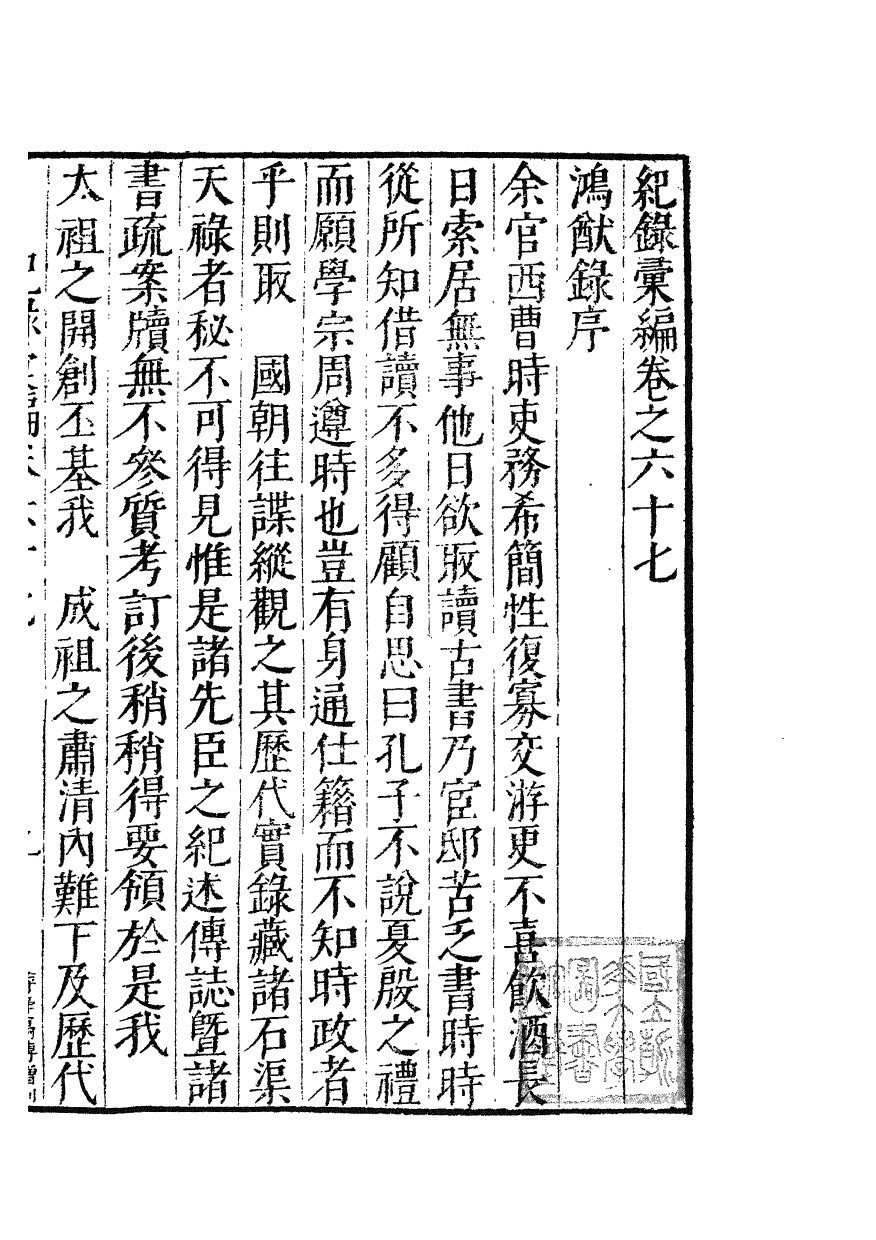 紀錄彙編卷之六十七
鴻猷錄序
余官西曹時吏務希簡性復寡交游更不喜飲酒長
日索居無事他日欲取讀古書乃宦邸苦乏書時時
從所知借讀不多得顧自思曰孔子不說夏殷之禮
而願學宗周遵時也豈有身通仕籍而不知時政者
乎則取　國朝往諜縱觀之其歷代實錄藏諸石渠
天祿者秘不可得見惟是諸先臣之紀述傳誌暨諸
書疏案牘無不參質考訂後稍稍得要領於是我
太祖之開創丕基我　成祖之肅清內難下及歷代